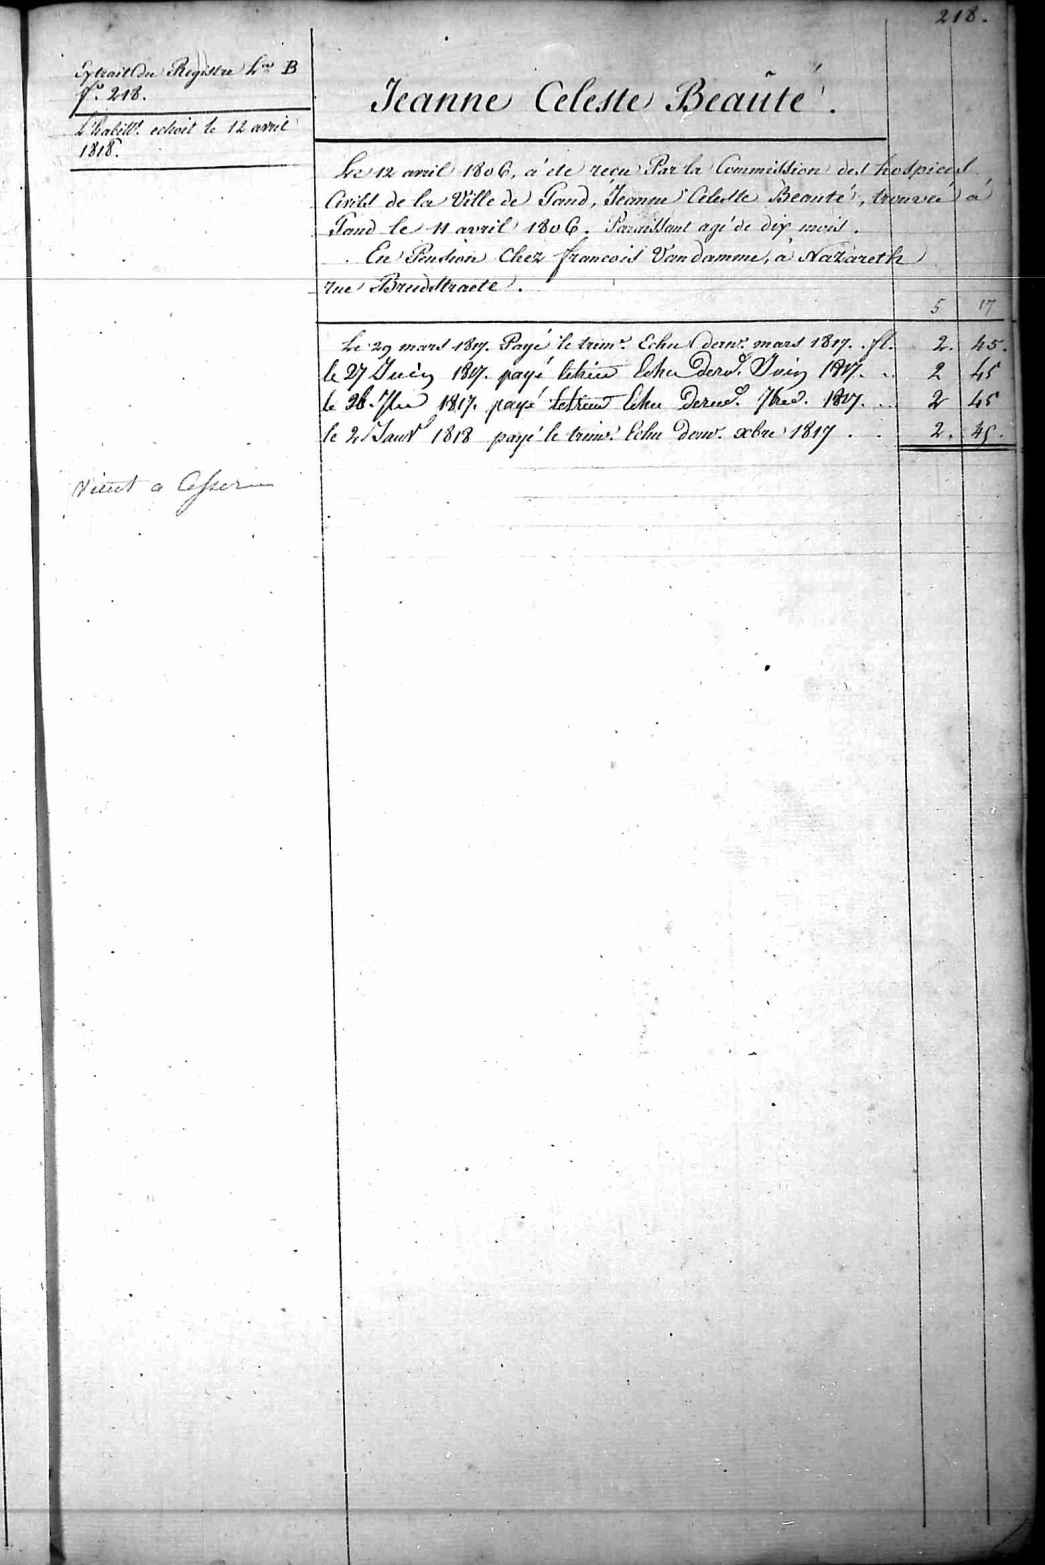 218.
Extrait du Registre Lra B
fo. 218.
L'habillt. echoit le 12 avril
1818.
Jeanne Celeste Beauté.
Le 12 avril 1806, a été reçu Par la Commission des hospices
Civils de la Ville de Gand, Jeanne Celeste Beauté, trouvée à
Gand le 11 avril 1806. Paraissant agé de dix mois.
En Pension Chez francois Vandamme, à Nazareth
rue Breedstraete.
5 17
Le 29 mars 1817. Payé le trime. Echu dernr. mars 1817. fl. 2. 45.
le 27 Juin 1817. payé letrim Echu dernr. Juin 1817. .. 2 45
le 26. 7bre 1817. payé letrim Echu dernr. 7bre. 1817. .. 2 45
le 2 Janvr 1818 payé le trime. Echu dernr. xbre 1817 . . 2. 45.
Vient a Cesser